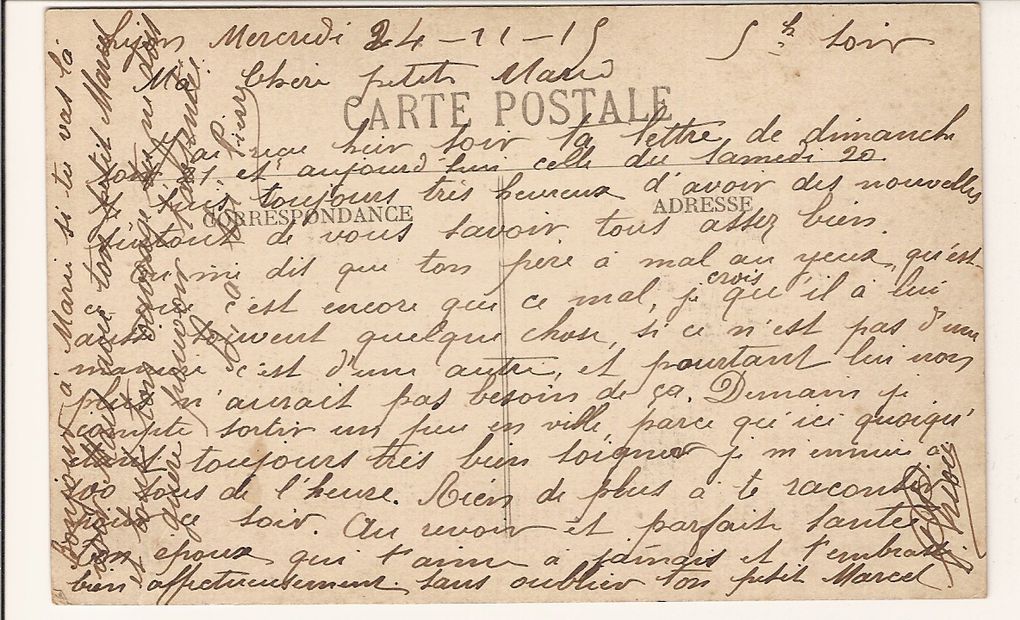 Mercredi 24-11-15 5h soir
Ma Chère petite
CARTE POSTALE
hier soir ta lettre de dimanche
et aujourd'hui celle du samedi 20.
Je suis toujours très heureux d'avoir des nouvelles
CORRESPONDANCE
ADRESSE
surtout de vous savoir tous assez bien.
Tu me dit que ton père à mal au yeux, qu'est
ce que c'est encore que ce mal, je crois qu'il à lui
aussi souvent quelque chose, si ce n'est pas d'une
manière c'est d'une autre, et pourtant lui non
plus n'aurait pas besoin de ça. Demain je
compte sortir un peu en ville parce qu'ici quoiqu'
étant toujours très bien soigner je m'ennuie à
100 sous de l'heure. Rien de plus à te raconter
pour ce soir. Au revoir et parfaite santé
Ton époux qui t'aime à jamais et t'embrasse
bien affectueusement. sans oublier ton petit Marcel
Bonjour à Marie si tu vas là
ton petit Marcel
tout ton courage
guère pouvoir